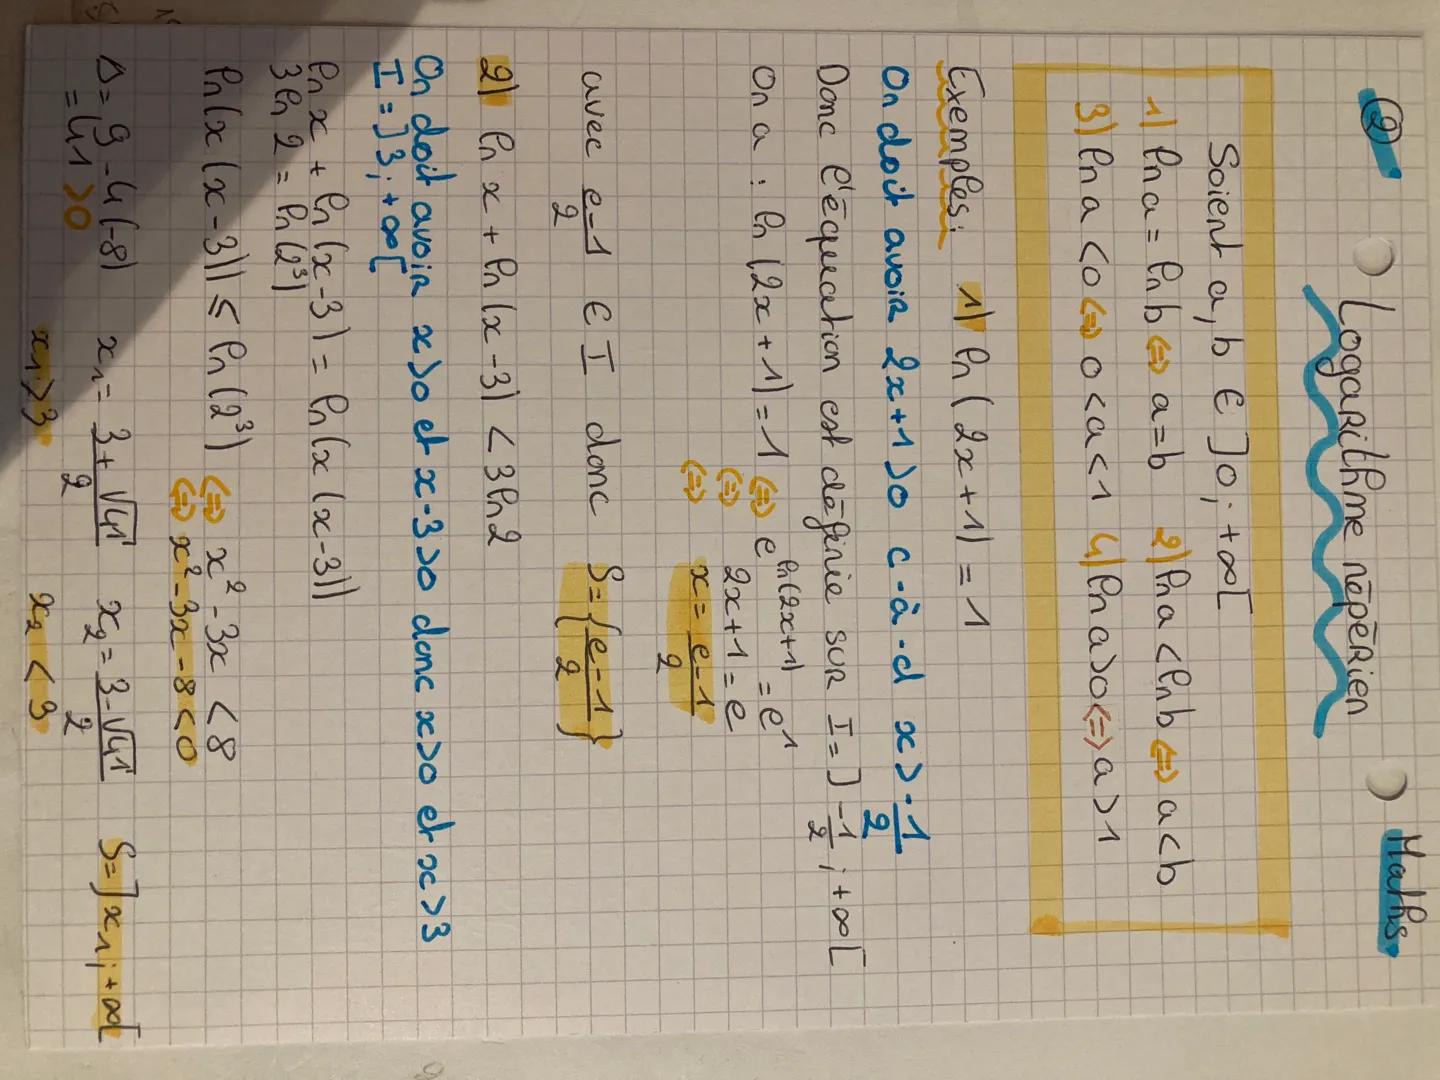 ② Logarithme népérien Maths
Soient a, b ∈ ]0; +∞[
1) ln a = ln b ⇔ a = b 2) ln a < ln b ⇔ a < b
3) ln a < 0 ⇔ 0 < a < 1 4) ln a > 0 ⇔ a > 1
Exemples: 1) ln(2x+1) = 1
On doit avoir 2x+1 > 0 c-à-d x > -1/2
Donc l'équation est définie sur I = ]-1/2; +∞[
On a : ln(2x+1) = 1 ⇔ e^ln(2x+1) = e^1
⇔ 2x+1 = e
⇔ x = e-1/2
avec e-1/2 ∈ I donc S = {e-1/2}
2) ln x + ln(x-3) < 3ln2
On doit avoir x>0 et x-3>0 donc x>0 et x>3
I = ]3; +∞[
ln x + ln(x-3) = ln(x(x-3))
3ln 2 = ln(2³)
ln(x(x-3)) ≤ ln(2³) ⇔ x² - 3x < 8
⇔ x² - 3x - 8 < 0
Δ = 9 - 4(-8) x₁ = 3+√41/2 x₂ = 3-√41/2 S = ]x₁; +∞[
= 41 > 0 x₁ > 3 x₂ < 3